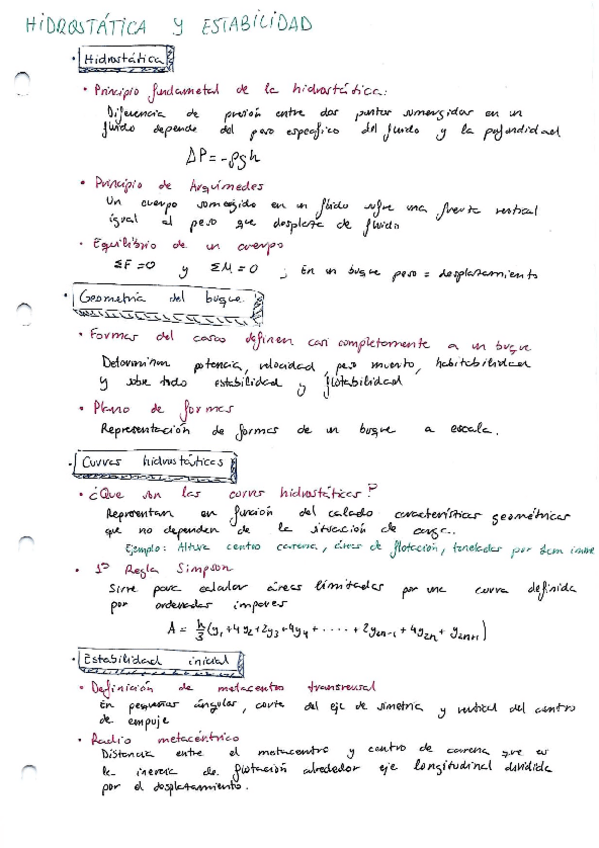 HIDROSTÁTICA Y ESTABILIDAD
• Hidrostática
• Principio fundametal de la hidrostática:
Diferencia de presión entre dos puntos sumergidos en un
fluido depende del peso específico del fluido y la profundidad
ΔP = -ρgh
• Principio de Arquímedes
Un cuerpo sumergido en un fluido sufre una fuerza vertical
igual al peso que desplaza de fluido
• Equilibrio de un cuerpo
ΣF = 0 y ΣM = 0 ; En un buque peso = desplazamiento
• Geometría del buque
• Formas del casco definen casi completamente a un buque
Determinan potencia, velocidad, peso muerto, habitabilidad
y sobre todo estabilidad y flotabilidad
• Plano de formas
Representación de formas de un buque a escala.
• Curvas hidrostáticas
• ¿Que son las curvas hidrostáticas?
Representan en función del calado características geométricas
que no dependen de la situación de carga.
Ejemplo: Altura centro carena, áreas de flotación, toneladas por
• 1ª Regla Simpson
Sirve para calcular áreas limitadas por una curva definida
por ordenadas impares
A = h/3 (y1 + 4y2 + 2y3 + 4y4 + ..... + 2y2n-1 + 4y2n + y2n+1)
• Estabilidad inicial
• Definición de metacentro transversal
En pequeños ángulos, corte del eje de simetria y vertical del centro
de empuje
• Radio metacéntrico
Distancia entre el metacentro y centro de carena que es
la inercia de flotación alrededor eje longitudinal dividida
por el desplazamiento.